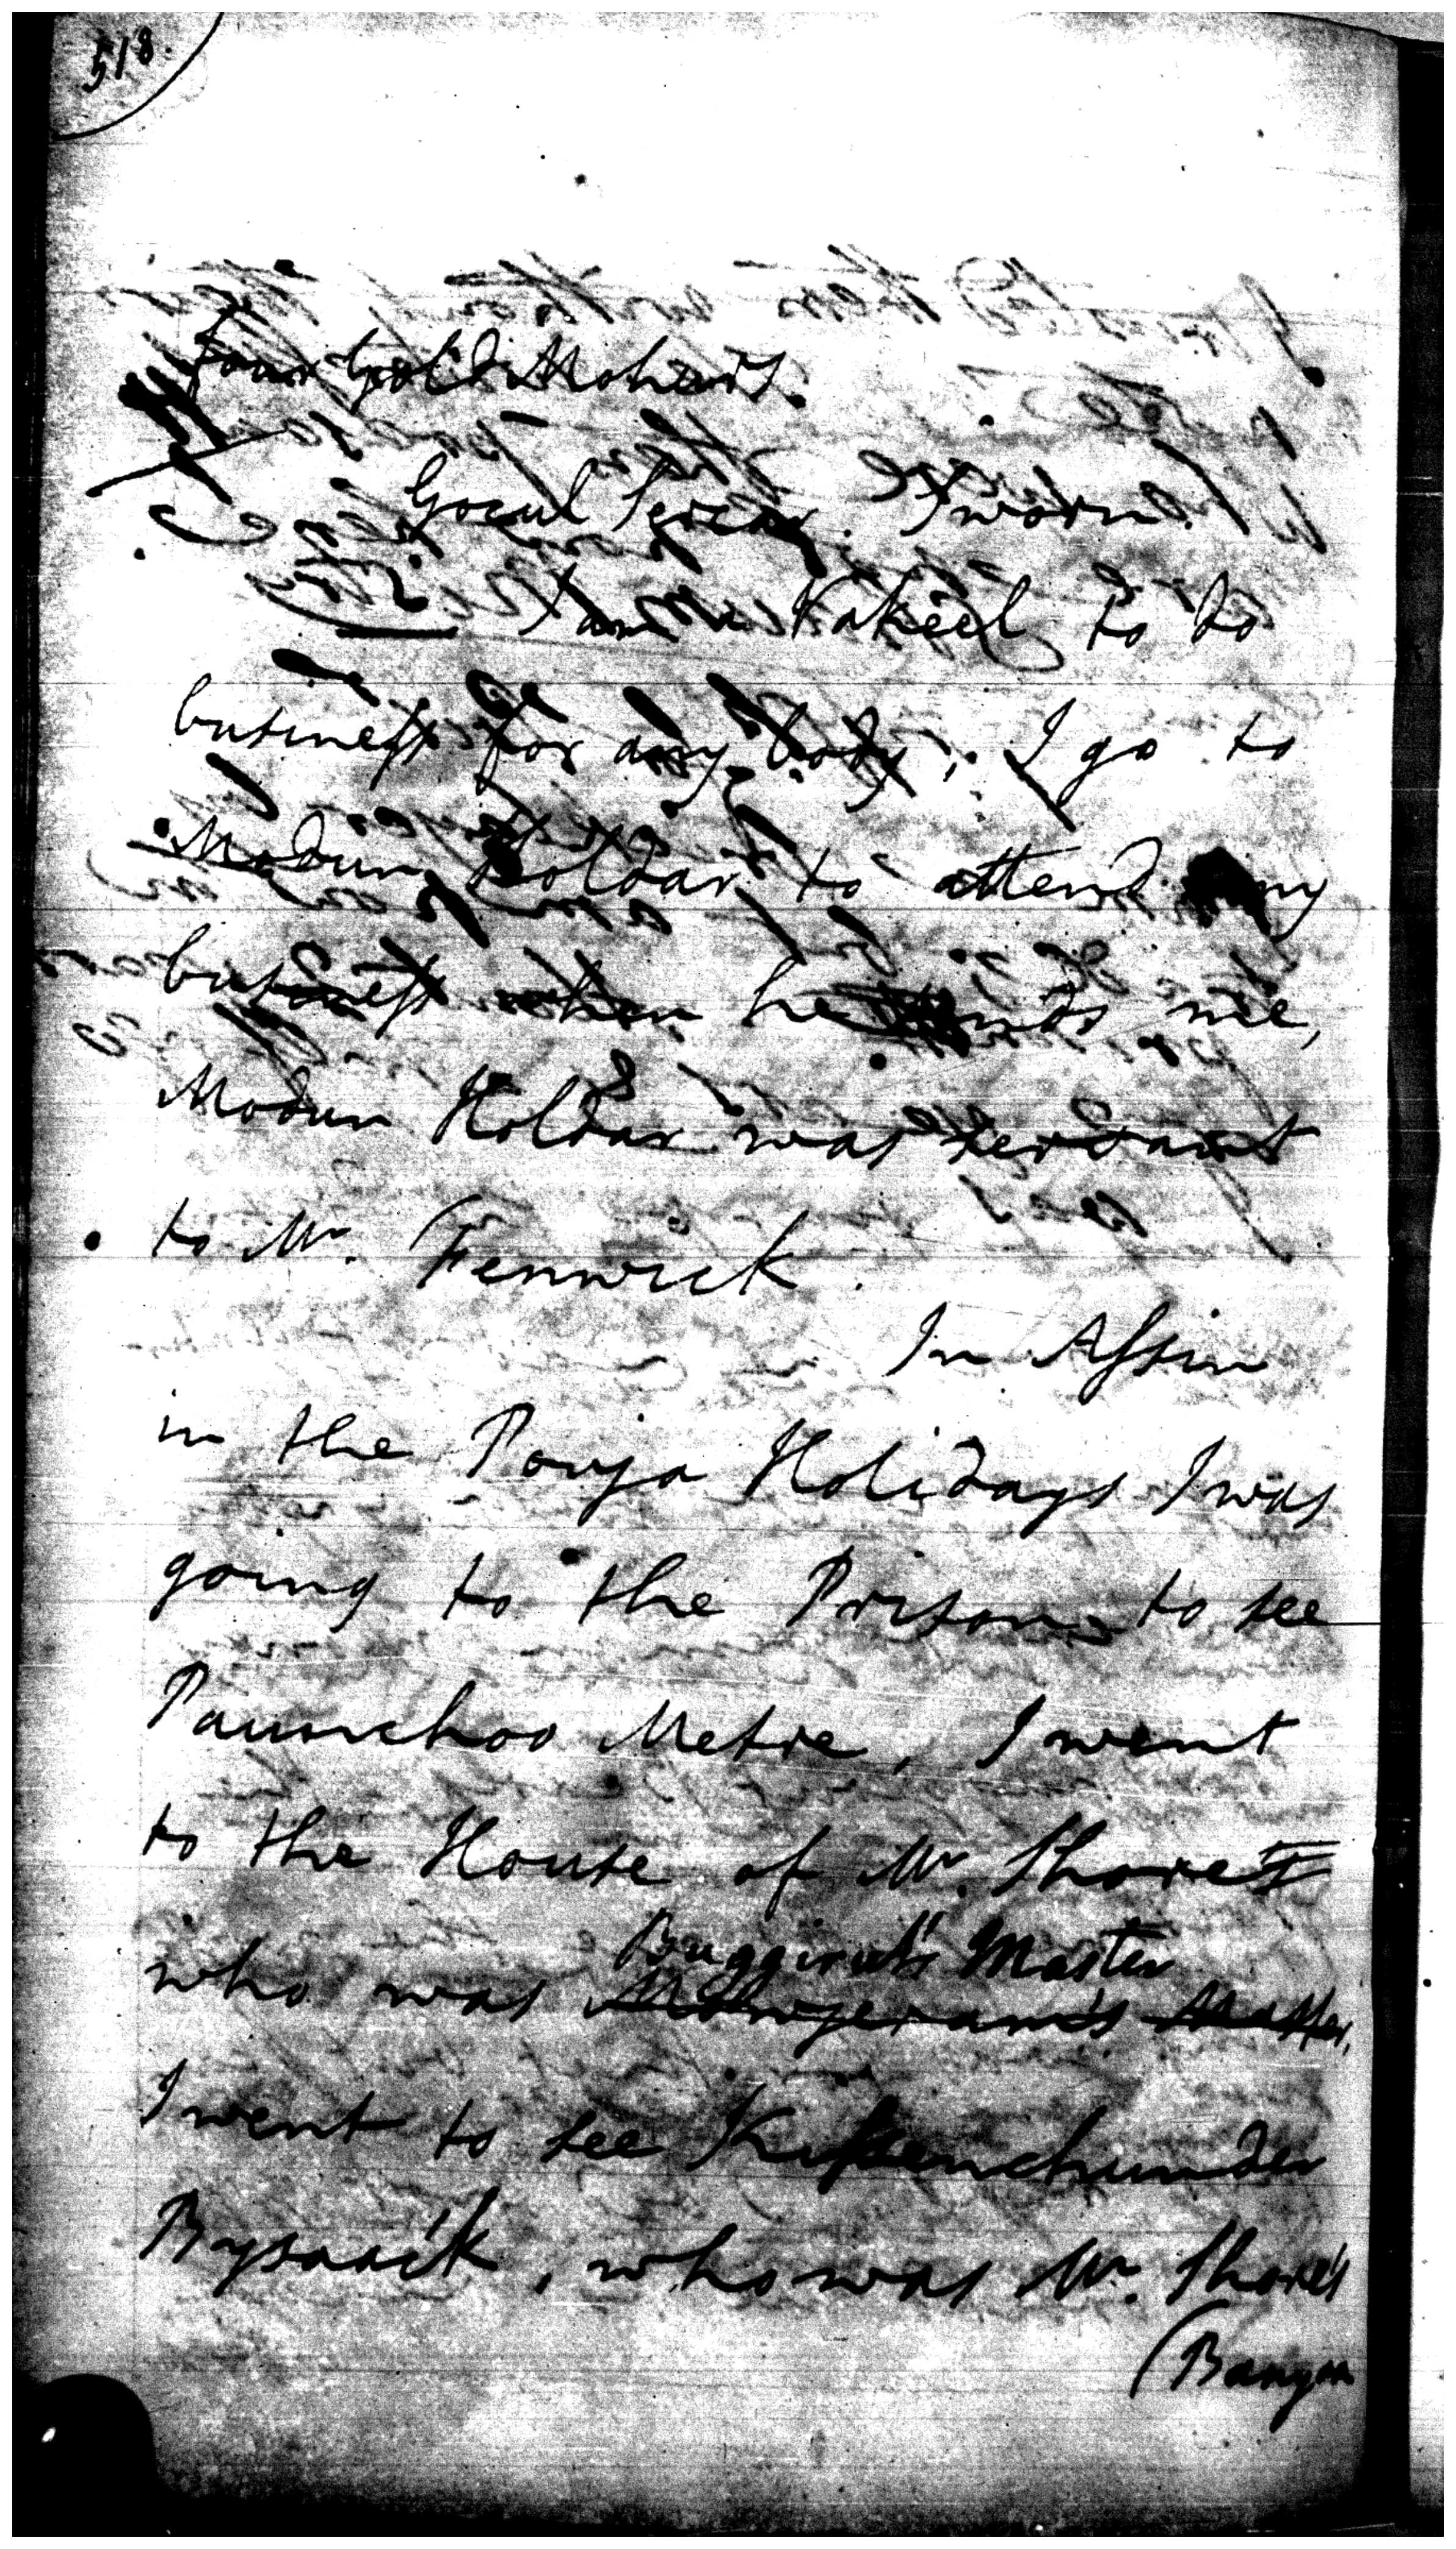 518.
Four Gold Mohurs.
Gocul Sercar. Sworn.
I am a Vakeel to do
business for any body, I go to
Modun Holdar to attend my
business when he sends me,
Modun Holdar was servant
to Mr. Fenwick.
In Assin
in the Pouja Holidays I was
going to the Prison to see
Paunchoo Metre, I went
to the House of Mr. Shore
Buggirut's Master
who was
I went to see Kissenchunder
Bysaack, who was Mr. Shore's
(Banyan